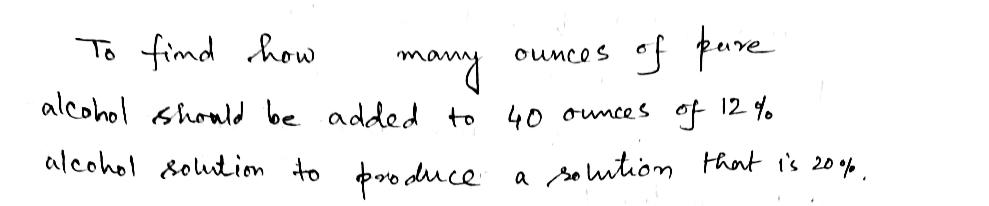 To find how many ounces of pure
alcohol should be added to 40 ounces of 12%
alcohol solution to produce a solution that is 20%.